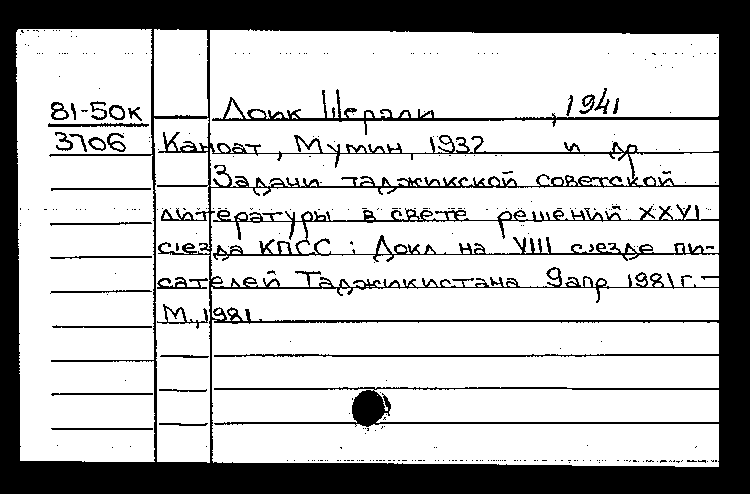 81-50к Лоик Шерали , 1941
3706 Каноат, Мумин, 1932 и др
Задачи таджикской советской
литературы в свете решений XXVI
съезда КПСС : Докл. на VIII съезде пи-
сателей Таджикистана 9 апр 1981 г. –
М., 1981.